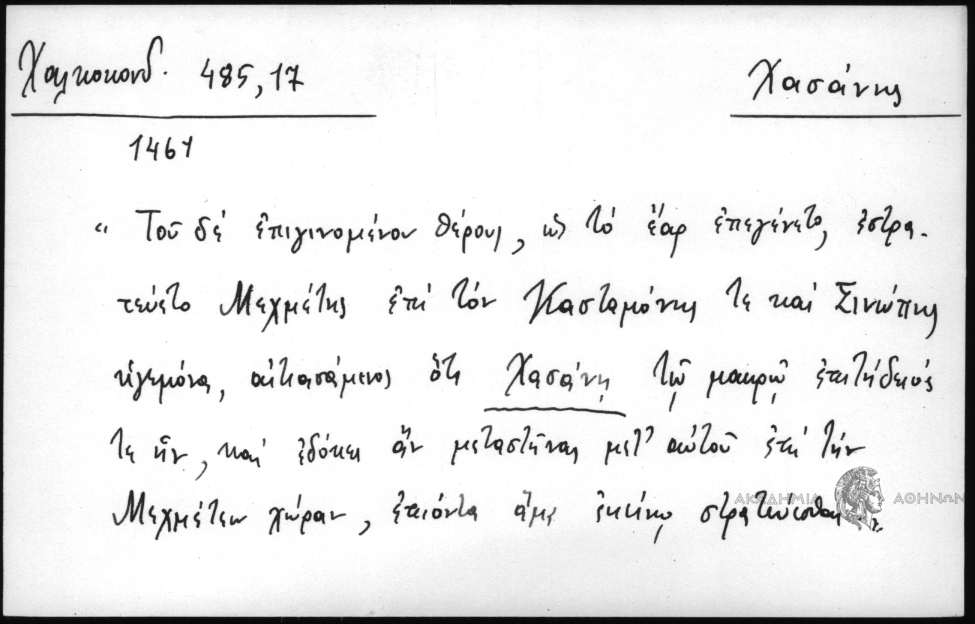 Χαλκοκονδ. 485,17
Χασάνης
1461
“ Τοῦ δὲ ἐπιγινομένου θέρους, ὡς τὸ ἔαρ ἐπεγένετο, ἐστρα-
τεύετο Μεχμέτης ἐπὶ τὸν Κασταμόνης τε καὶ Σινώπης
ἡγεμόνα, αἰτιασάμενος ὅτι Χασάνῃ τῷ μακρῷ ἐπιτήδειός
τε ἦν, καὶ ἐδόκει ἂν μεταστῆναι μετ' αὐτοῦ ἐπὶ τὴν
Μεχμέτεω χώραν, ἐπιόντα ἅμα ἐκείνῳ στρατεύεσθαι „
ΑΚΑΔΗΜΙΑ ΑΘΗΝΩΝ